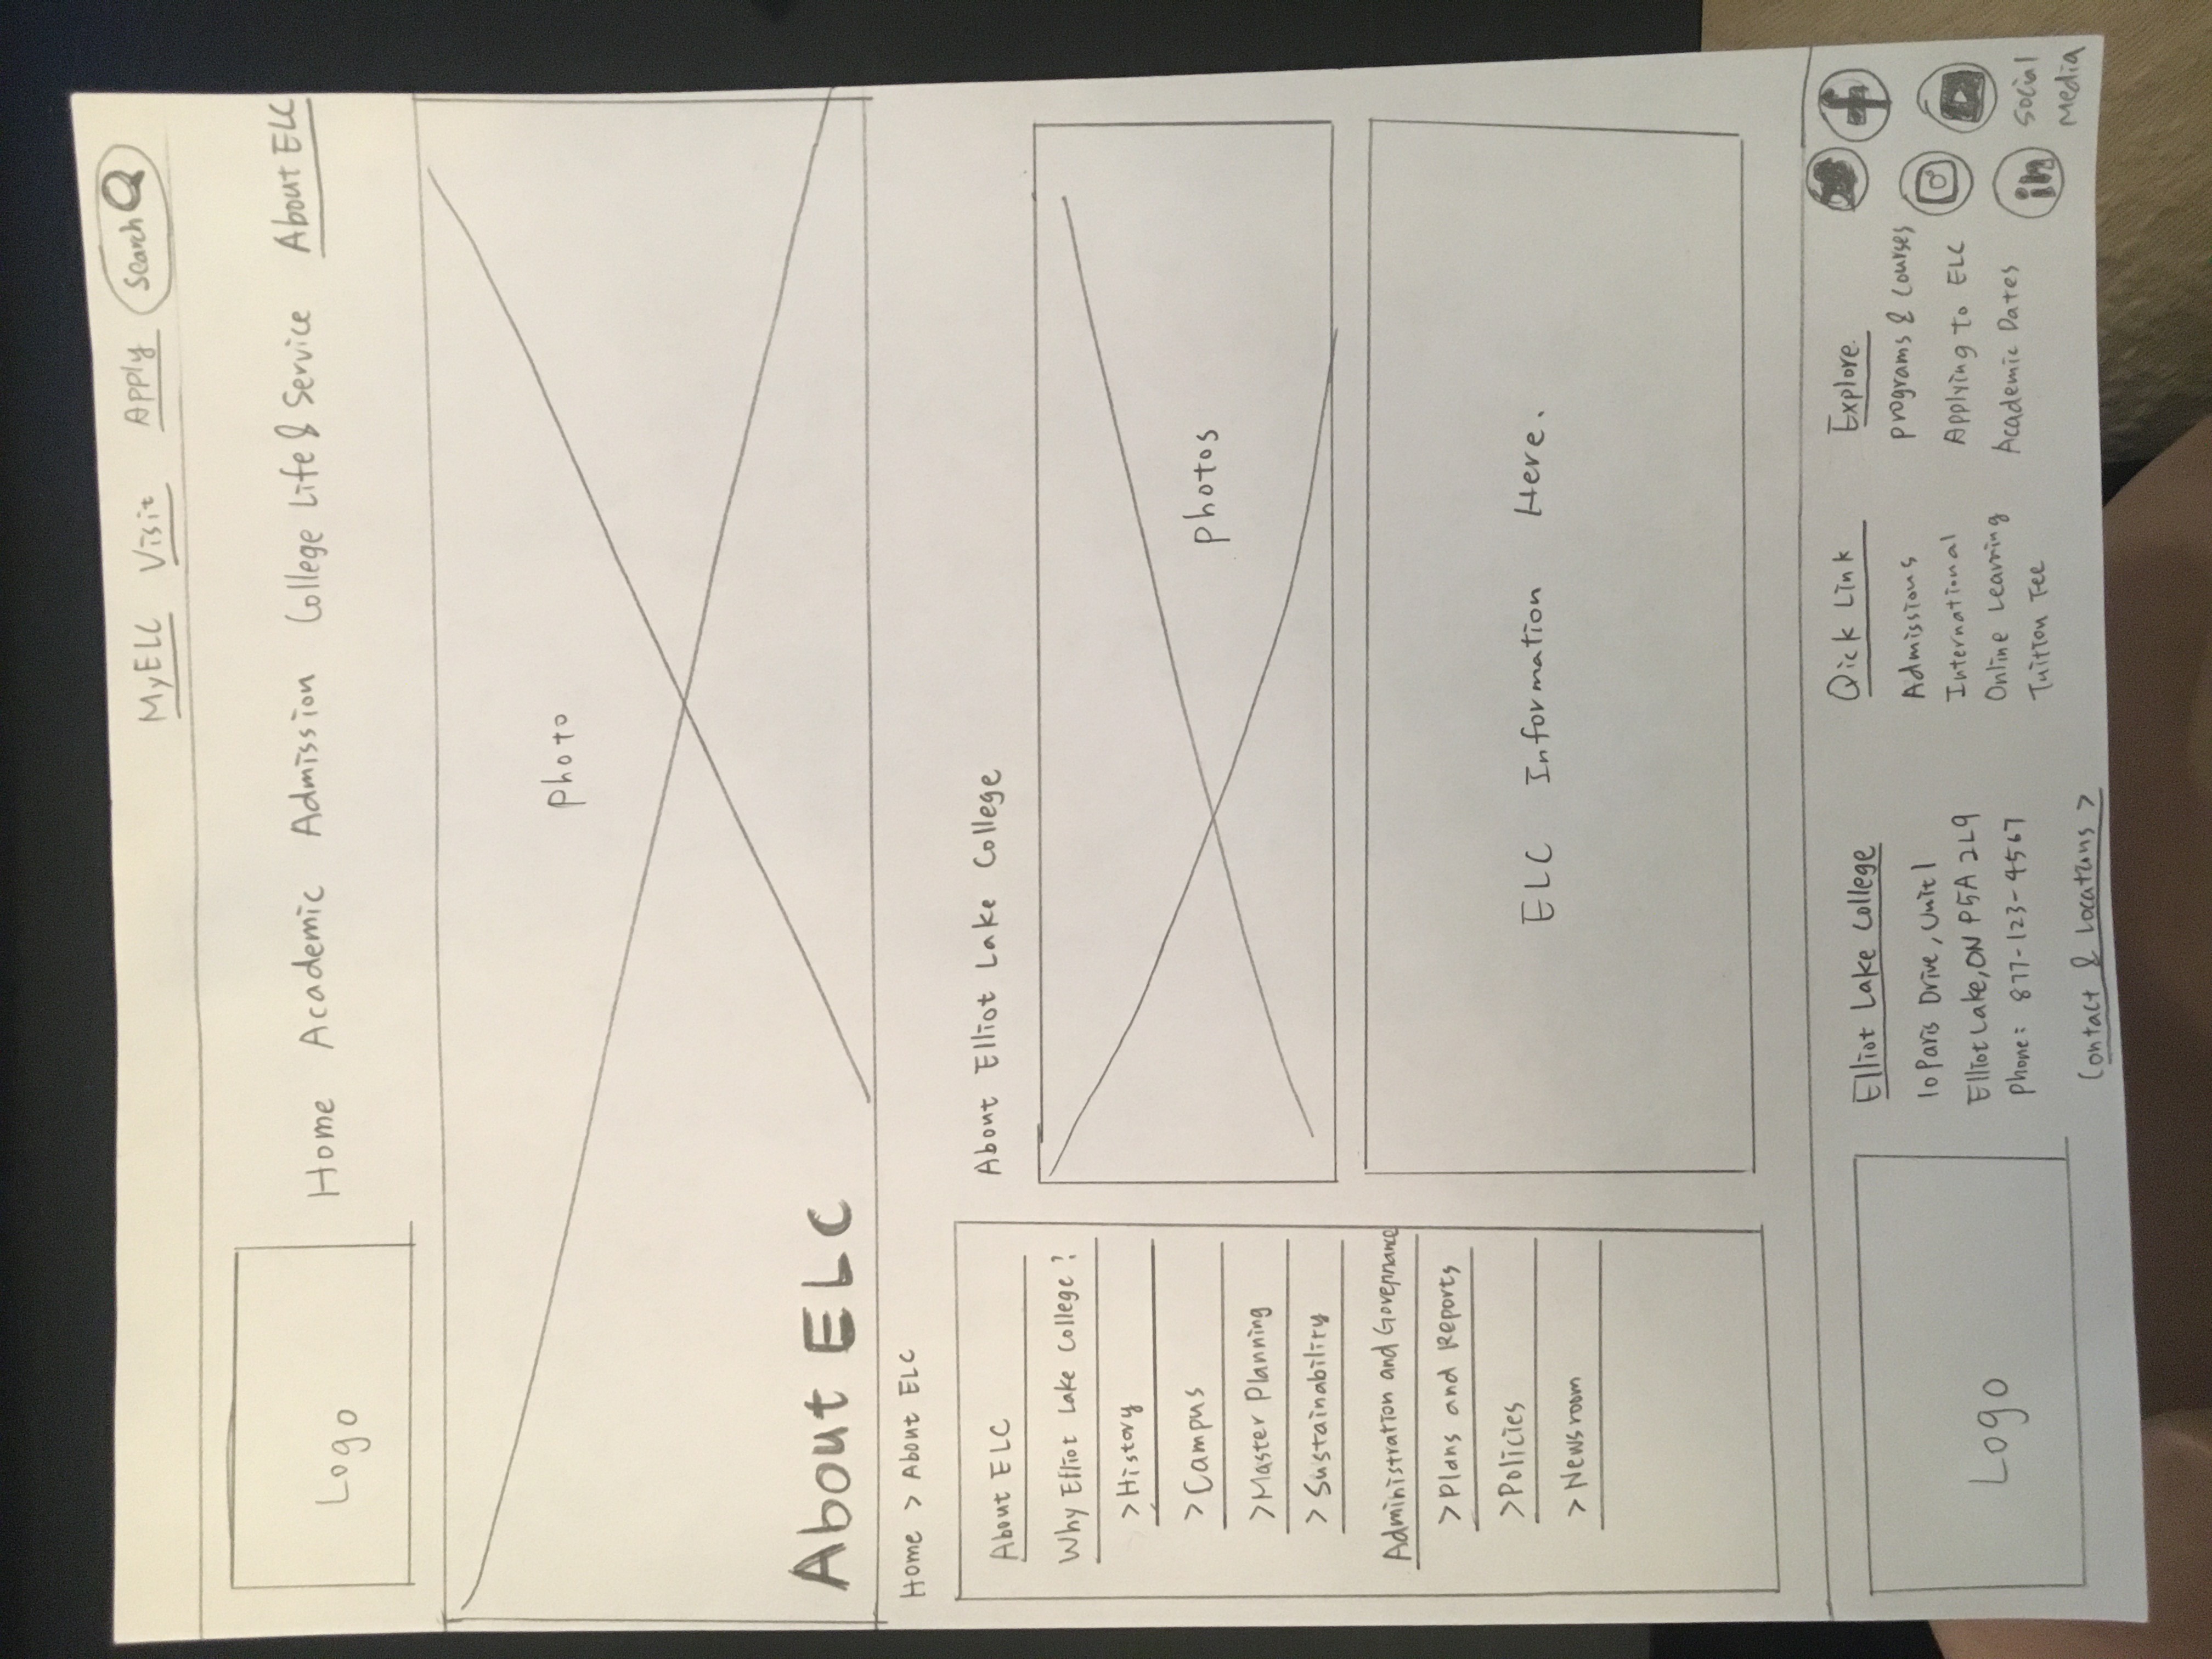 MyELC Visit Apply Search
Logo
Home Academic Admission College Life & Service About ELC
Photo
About ELC
Home > About ELC
About ELC
Why Elliot Lake College?
>History
>Campus
>Master Planning
>Sustainability
Administration and Governance
>Plans and Reports
>Policies
>Newsroom
About Elliot Lake College
Photos
ELC Information Here.
Logo
Elliot Lake College
10 Paris Drive, Unit 1
Elliot Lake, ON P5A 2L9
Phone: 877-123-4567
Contact & Locations >
Qick Link
Admissions
International
Online Learning
Tuition Fee
Explore
Programs & Courses
Applying to ELC
Academic Dates
f
in
Social
Media